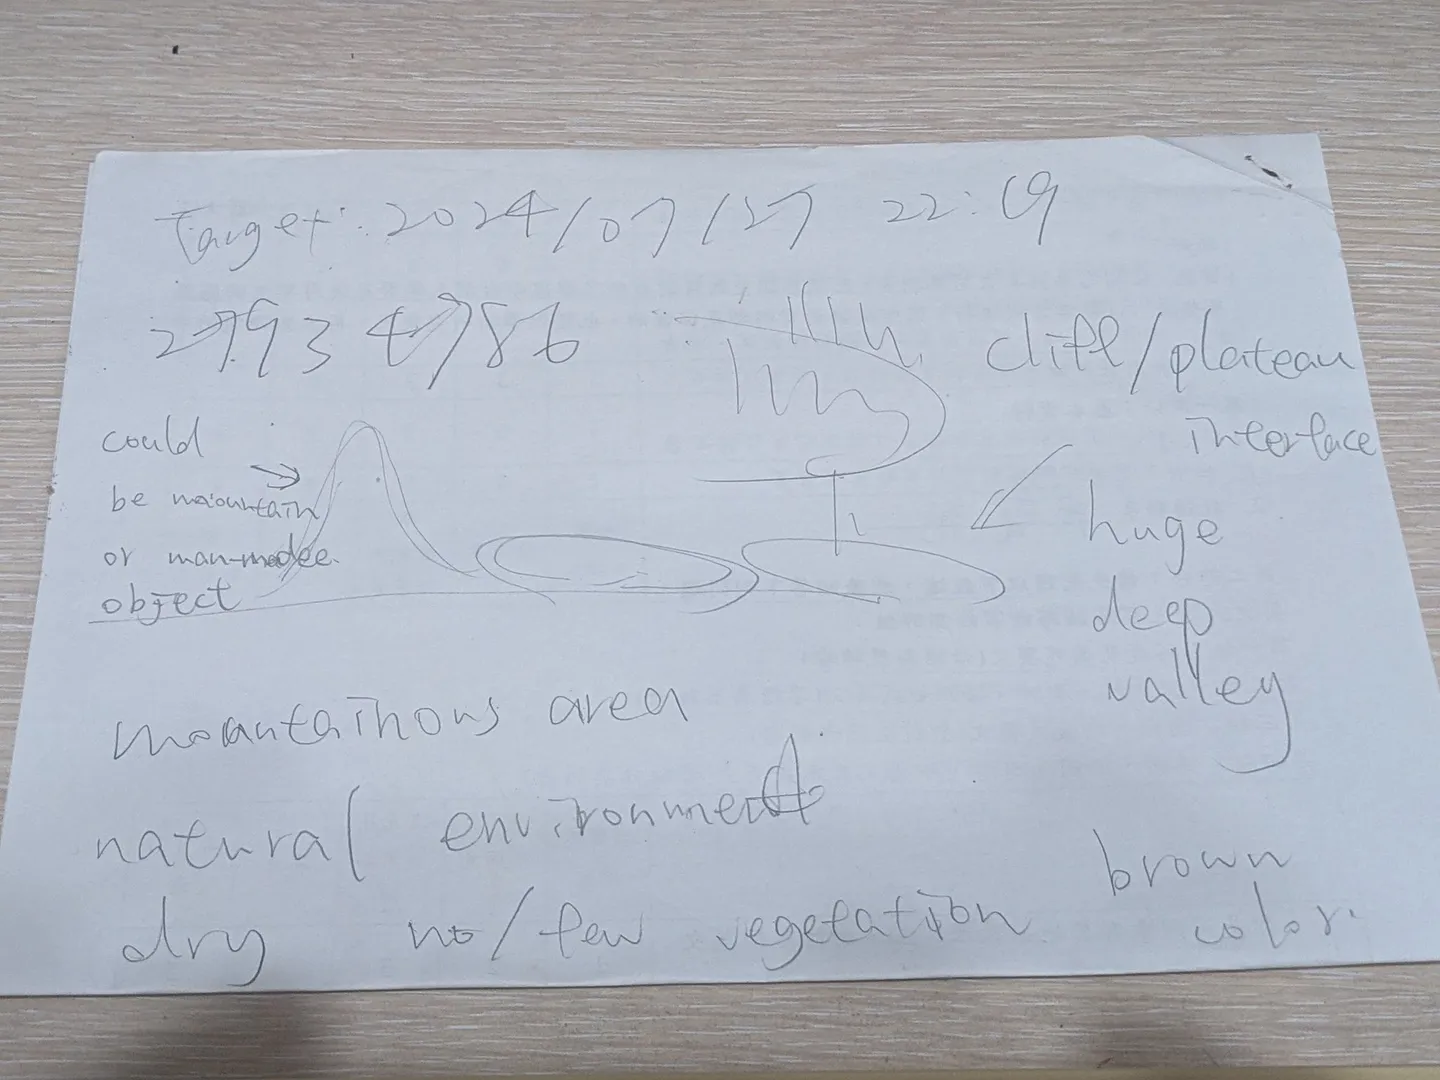 Target: 2024/07/27 22:19
2793 4786
cliff/plateau
interface
could
be maountain
or man-madee.
object
huge
deep
valley
moantainous area
natural environment
brown
color.
dry no/few vegetation